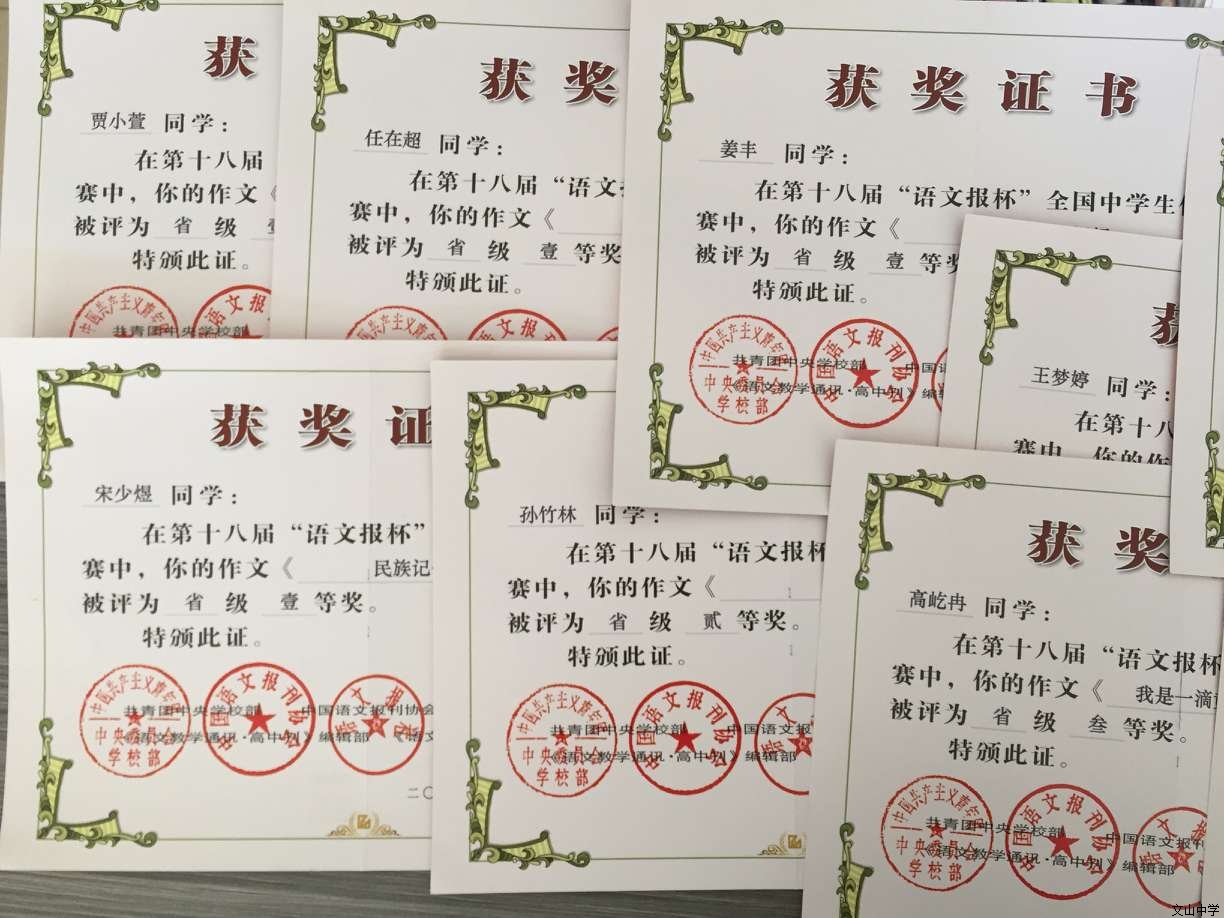 获
贾小萱 同学：
在第十八届
赛中，你的作文《
被评为 省 级
特颁此证。
共青团中央学校部
语文报刊
获奖
任在超 同学：
在第十八届“语文
赛中，你的作文《
被评为 省 级 壹 等奖
特颁此证。
获奖证书
姜丰 同学：
在第十八届“语文报杯”全国中学生
赛中，你的作文《
被评为 省 级 壹 等奖
特颁此证。
共青团中央学校部 中国
《语文教学通讯·高中刊》编
中国共产主义青年团
中央委员会
学校部
中国语文报刊协会
获
王梦婷 同学：
在第十八
赛中，你的作
获奖证
宋少煜 同学：
在第十八届“语文报杯”
赛中，你的作文《 民族记
被评为 省 级 壹 等奖。
特颁此证。
共青团中央学校部 中国语文报刊协会
《语文教学通讯·高中刊》编辑部
中国共产主义青年团
中央委员会
学校部
中国语文报刊协会
语文报社
二〇
孙竹林 同学：
在第十八届“语文报杯
赛中，你的作文《
被评为 省 级 贰 等奖。
特颁此证。
共青团中央学校部 中国语文报
《语文教学通讯·高中刊》编辑部
中国共产主义青年团
中央委员会
学校部
中国语文报刊协会
获奖
高屹冉 同学：
在第十八届“语文报杯
赛中，你的作文《 我是一滴
被评为 省 级 叁 等奖。
特颁此证。
共青团中央学校部 中国语文报
《语文教学通讯·高中刊》编辑部
中国共产主义青年团
中央委员会
学校部
中国语文报刊协会
文山中学